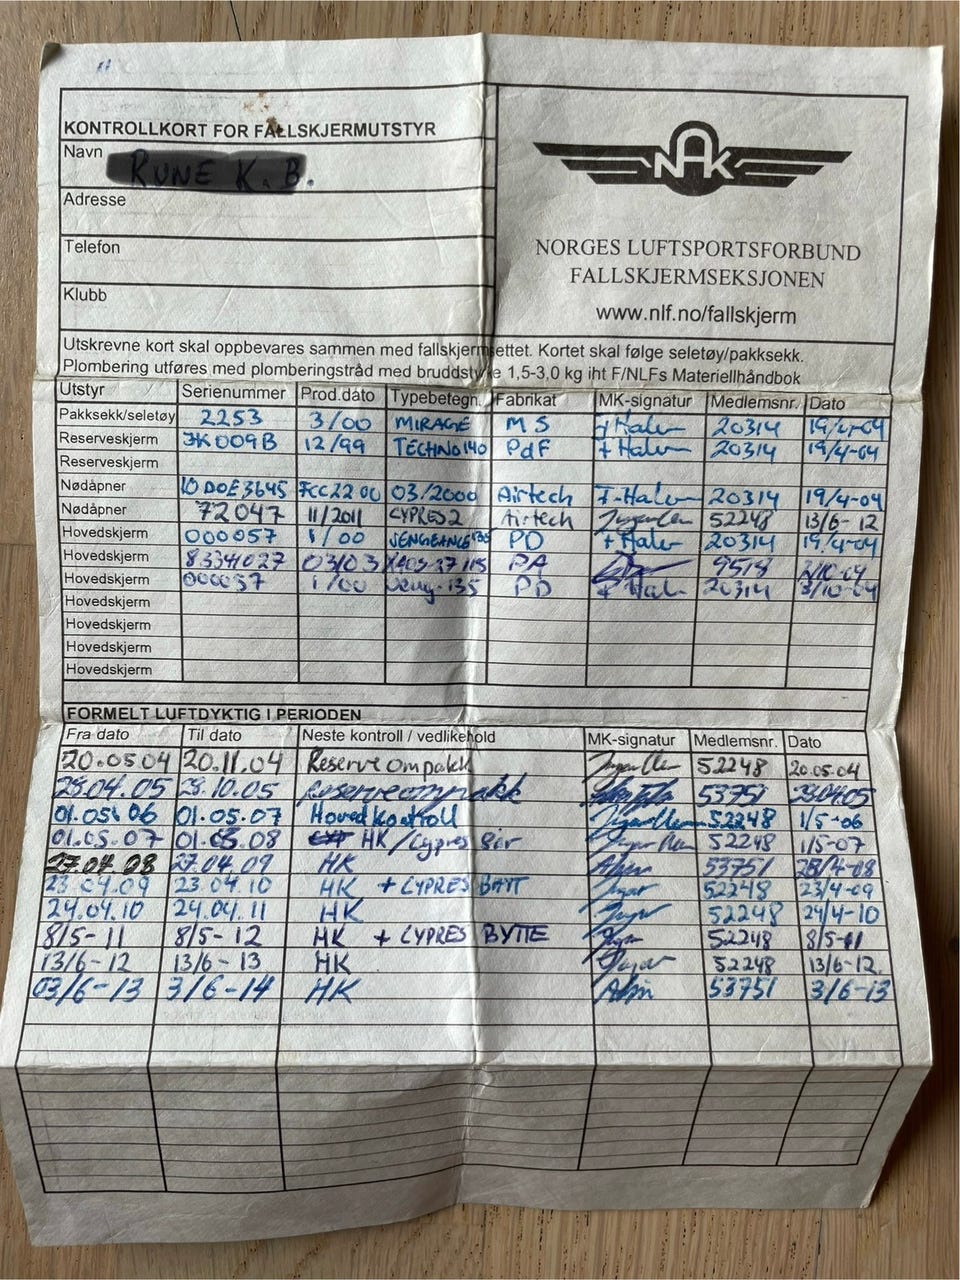 KONTROLLKORT FOR FALLSKJERMUTSTYR
Navn RUNE K. B.
Adresse
Telefon
Klubb
NAK
NORGES LUFTSPORTSFORBUND
FALLSKJERMSEKSJONEN
www.nlf.no/fallskjerm
Utskrevne kort skal oppbevares sammen med fallskjermsettet. Kortet skal følge seletøy/pakksekk.
Plombering utføres med plomberingstråd med bruddstyrke 1,5-3,0 kg iht F/NLFs Materiellhåndbok
Utstyr Serienummer Prod.dato Typebetegn. Fabrikat MK-signatur Medlemsnr. Dato
Pakksekk/seletøy 2253 3/00 MIRAGE M S 20314 19/4-04
Reserveskjerm 009B 12/99 TECHNO 140 PdF 20314 19/4-04
Reserveskjerm
Nødåpner 03/2000 Airtech 20314 19/4-04
Nødåpner 72047 11/2011 CYPRES 2 Airtech 52248 13/6-12
Hovedskjerm 000057 1/00 VENGEANCE 135 PD 20314 19/4-04
Hovedskjerm 03/03 PA 9518
Hovedskjerm 000057 1/00 Veng-135 PD 20314 3/10-04
Hovedskjerm
Hovedskjerm
Hovedskjerm
Hovedskjerm
FORMELT LUFTDYKTIG I PERIODEN
Fra dato Til dato Neste kontroll / vedlikehold MK-signatur Medlemsnr. Dato
20.05.04 20.11.04 Reserve ompakk 52248 20.05.04
29.04.05 29.10.05 Reserveompakk 53751
01.05.06 01.05.07 Hovedkontroll 52248 1/5-06
01.05.07 01.05.08 HK/Cypres 52248 1/5-07
27.04.08 27.04.09 HK 53751
23.04.09 23.04.10 HK + CYPRES BATT 52248 23/4-09
24.04.10 24.04.11 HK 52248 24/4-10
8/5-11 8/5-12 HK + CYPRES BYTTE 52248 8/5-11
13/6-12 13/6-13 HK 52248 13/6-12
03/6-13 3/6-14 HK 53751 3/6-13